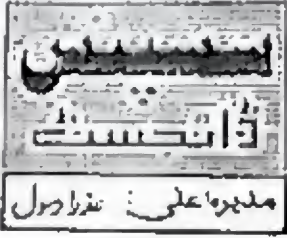 سسپنس
ڈائجسٹ
مدیرہ اعلیٰ: عذرا رسول